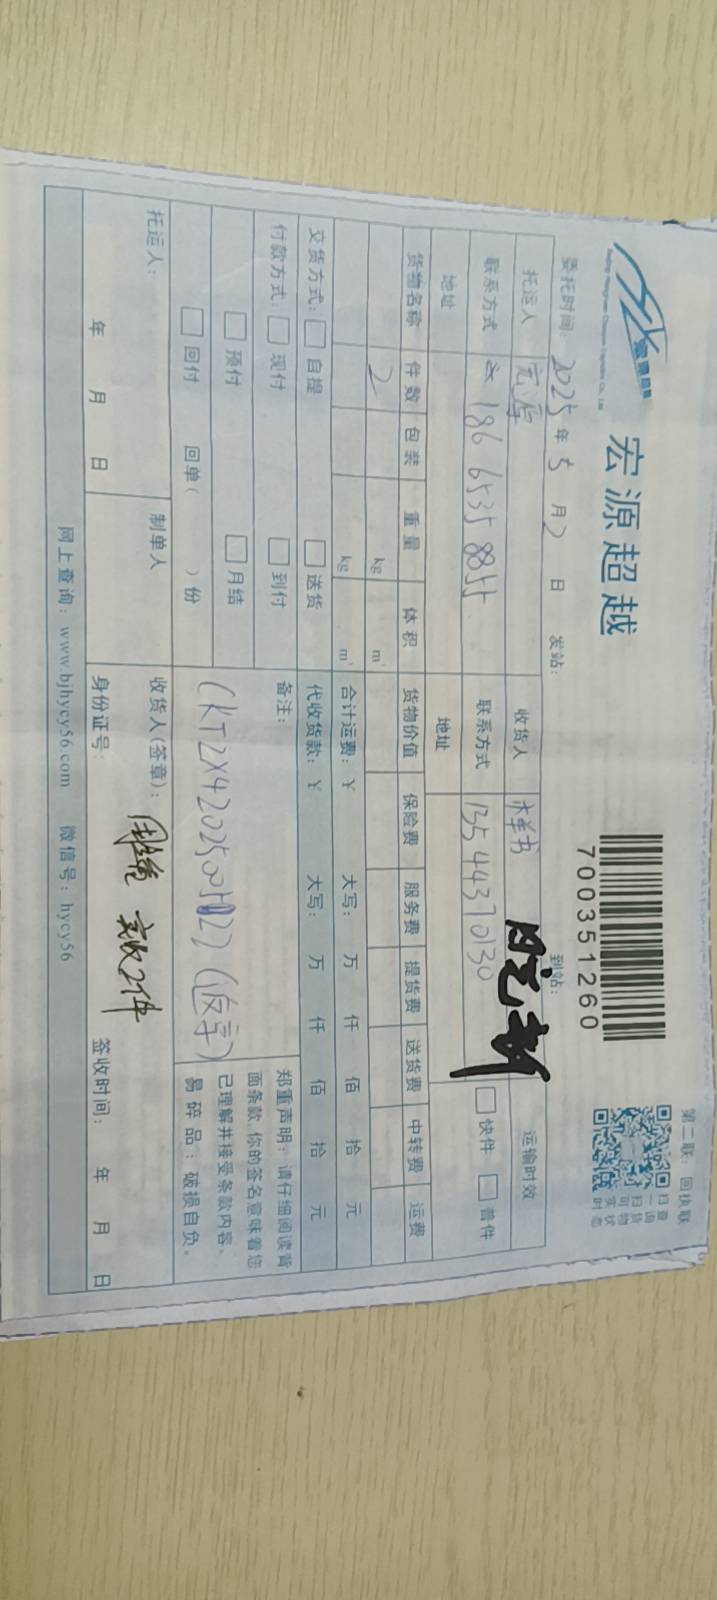 第二联：回执联
宏源超越
宏源超越
700351260
扫一扫可实时
查询货物状态
委托时间：2025年5月2日 发站： 到站：
托运人 克库 收货人 样书 运输时效
联系方式 186 6535 8855 联系方式 13544370130 快件 普件
地址 地址
货物名称 件数 包装 重量 体积 货物价值 保险费 服务费 提货费 送货费 中转费 运费
2 kg m³
kg m³ 合计运费：¥ 大写： 万 仟 佰 拾 元
交货方式： 自提 送货 代收货款：¥ 大写： 万 仟 佰 拾 元
付款方式： 现付 到付 备注：
预付 月结
回付 回单（ ）份
郑重声明：请仔细阅读背
面条款，你的签名意味着您
已理解并接受条款内容。
易碎品：破损自负。
托运人： 制单人 收货人(签章)：
实收2件
年 月 日 身份证号： 签收时间： 年 月 日
网上查询：www.bjhycy56.com 微信号：hycy56